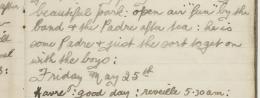 beautiful park: open air "fun" by the
band & the Padre after tea: he is
some Padre & just the sort to get on
with the boys:
Friday May 25th
Havre: good day: reveille 5.30am: